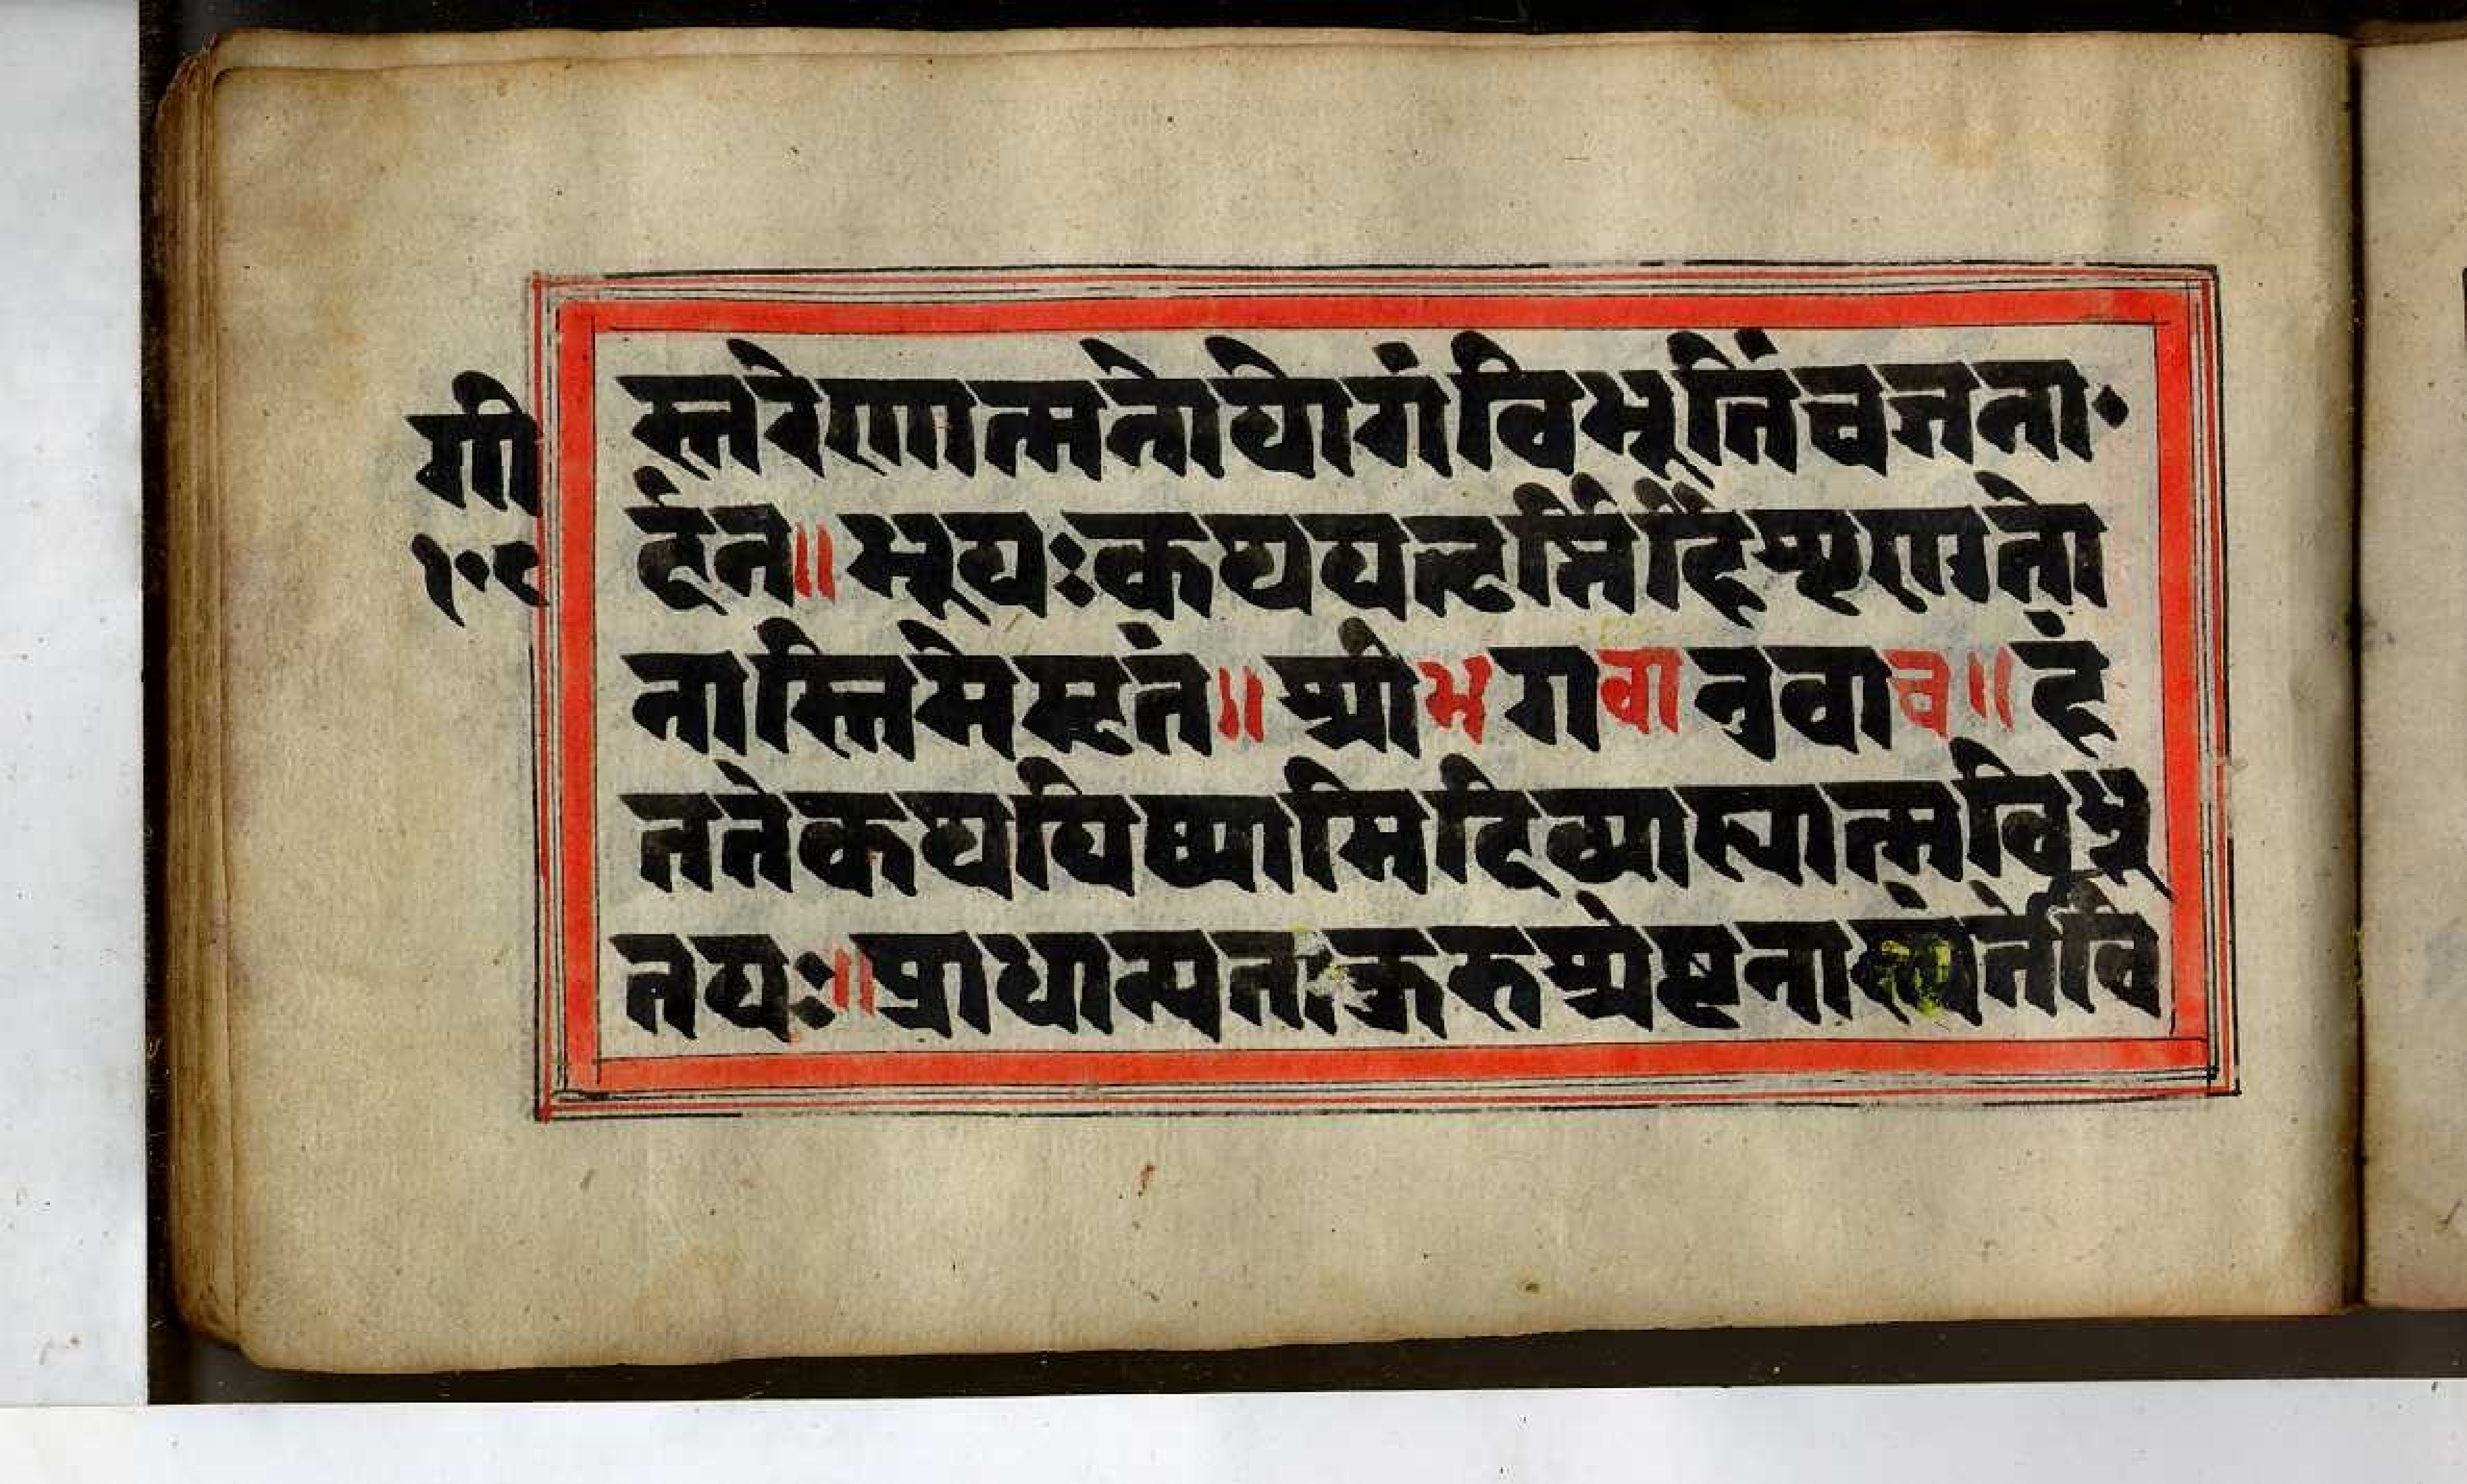 स्तरेणात्मनोयोगंविभूतिंचजना
गी
र्दन॥भूयःकथयतृप्तिर्हिशृण्वतो
१०८
नास्तिमेमृतं॥श्रीभगवानुवाच॥हं
ततेकथयिष्यामिदिव्याह्यात्मविभू
तयः॥प्राधान्यतःकुरुश्रेष्टनास्त्यंतोवि